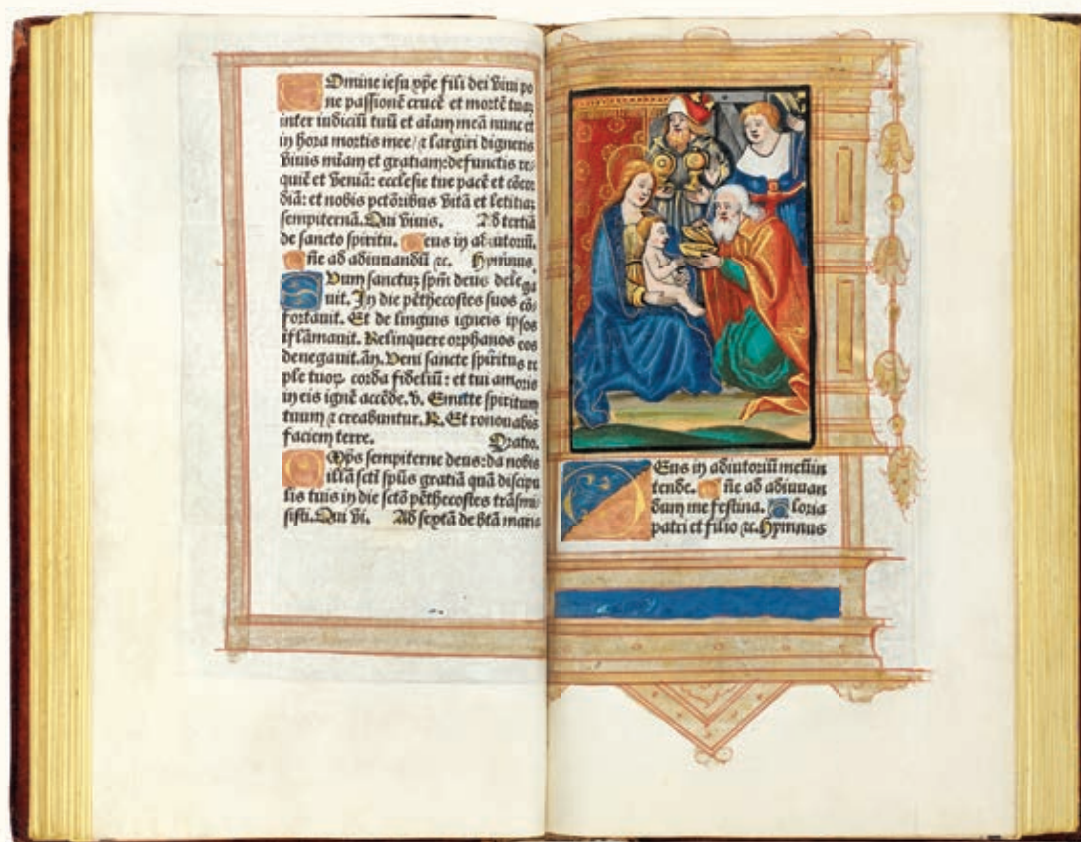 Omine iesu xpe fili dei vivi po
ne passionē crucē et mortē tuaz
inter iudiciū tuū et aīam meā nunc et
in hora mortis mee/ ⁊ largiri digneris
vivis mīam et gratiam: defunctis re⸗
quiē et veniā: ecclesie tue pacē et cōcor
diā: et nobis petōribus vitā et letitiaz
sempiternā. Qui vivis. Ad tertiā
de sancto spiritu. Deus in adiutoriū.
Dñe ad adiuvandū ⁊c. Hymnus.
Suum sanctuz spm̄ deus delega
vit. In die pēthecostes suos cō⸗
fortavit. Et de linguis igneis ipsos
iflāmavit. Relinquere orphanos eos
denegavit. añ. Veni sancte spiritus re
ple tuoꝝ corda fideliū: et tui amoris
in eis ignē accēde. v. Emitte spiritum
tuum ⁊ creabuntur. R. Et renovabis
faciem terre. Oratio.
Omp̄s sempiterne deus: da nobis
illā sctī sp̄us gratiā quā discipu
lis tuis in die sctā pēthecostes trāsmi
sisti. Qui vi. Ad septā de btā maria
Deus in adiutoriū meū in
tende. Dñe ad adiuvan
dum me festina. Gloria
patri et filio ⁊c. Hymnus